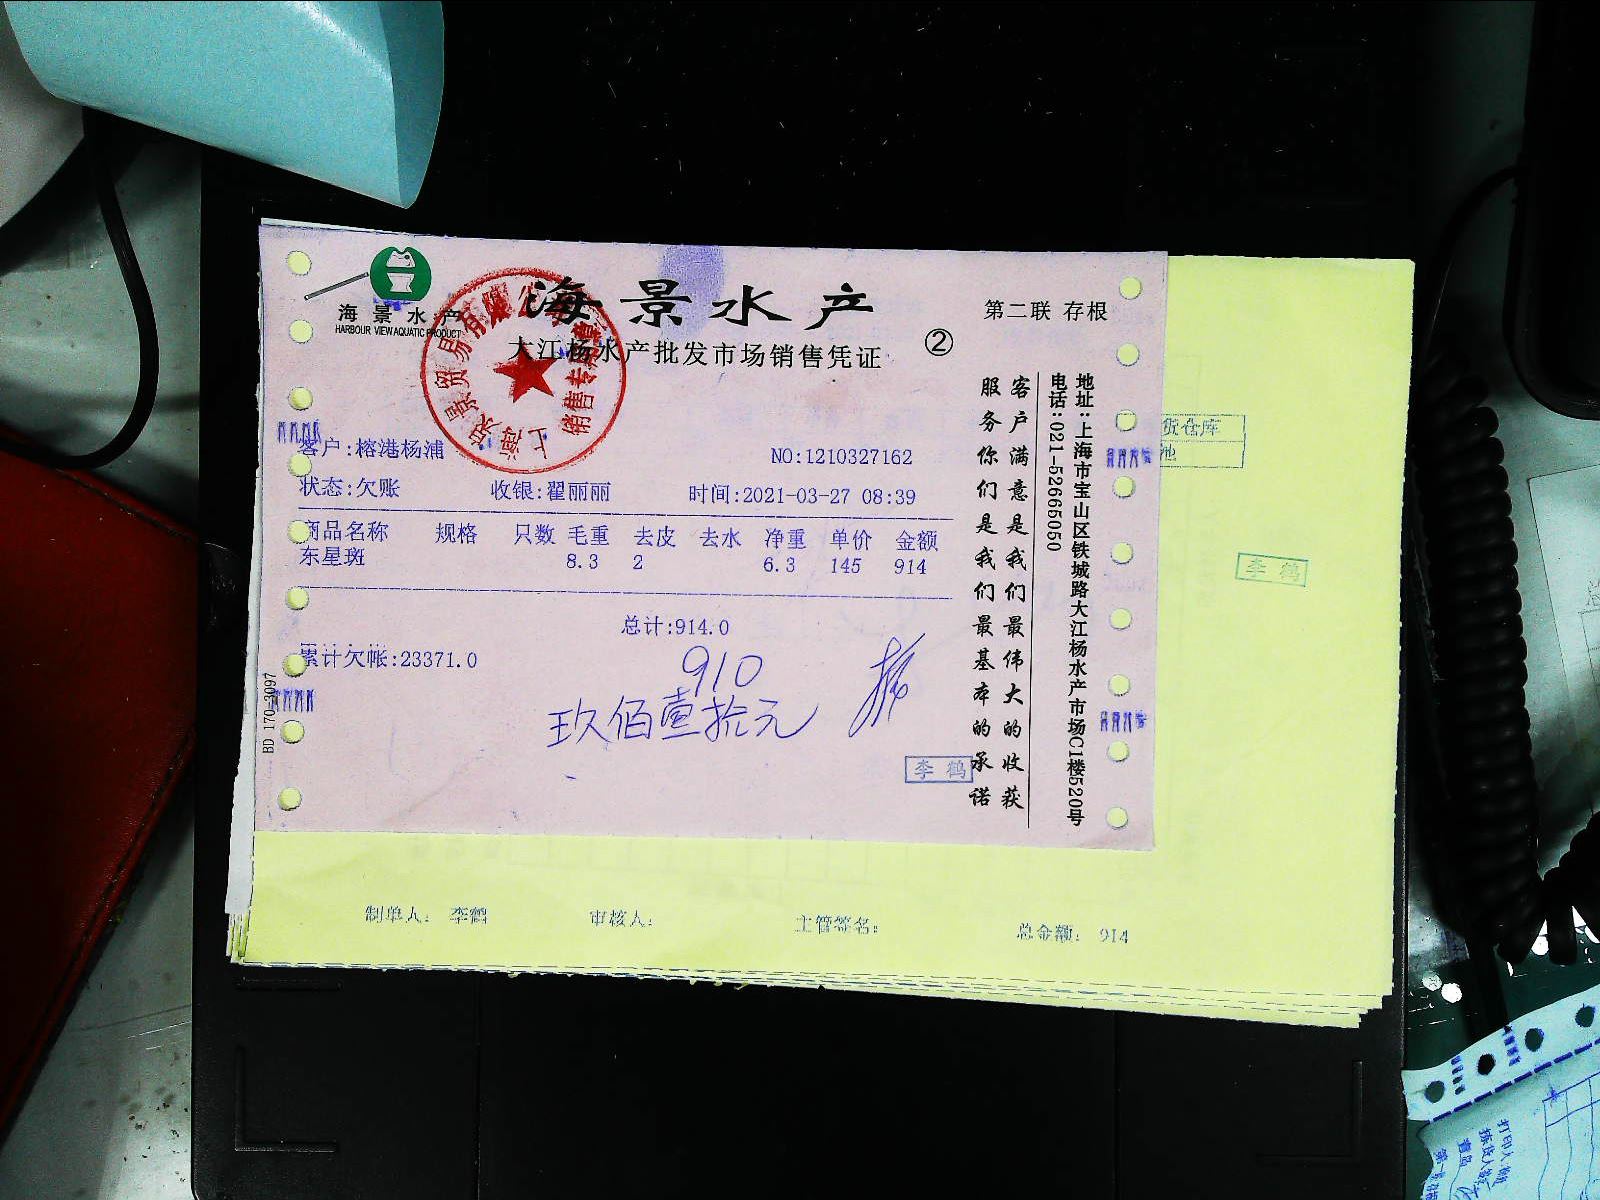 海景水产
HARBOUR VIEW AQUATIC PRODUCT
海景水产
大江杨水产批发市场销售凭证
②
第二联 存根
销售专用章
客户:榕港杨浦
NO:1210327162
状态:欠账 收银:翟丽丽 时间:2021-03-27 08:39
商品名称 规格 只数 毛重 去皮 去水 净重 单价 金额
东星斑 8.3 2 6.3 145 914
总计:914.0
累计欠帐:23371.0
910
玖佰壹拾元
李鹤
BD 170-3097
客户满意是我们最伟大的收获
服务你们是我们最基本的承诺
地址:上海市宝山区铁城路大江杨水产市场C1楼520号
电话:021-52665050
货仓库
李鹤
制单人: 李鹤 审核人: 主管签名: 总金额: 914
打印人